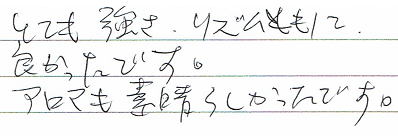 とても強さ、リズムともに
良かったです。
アロマも素晴らしかったです。